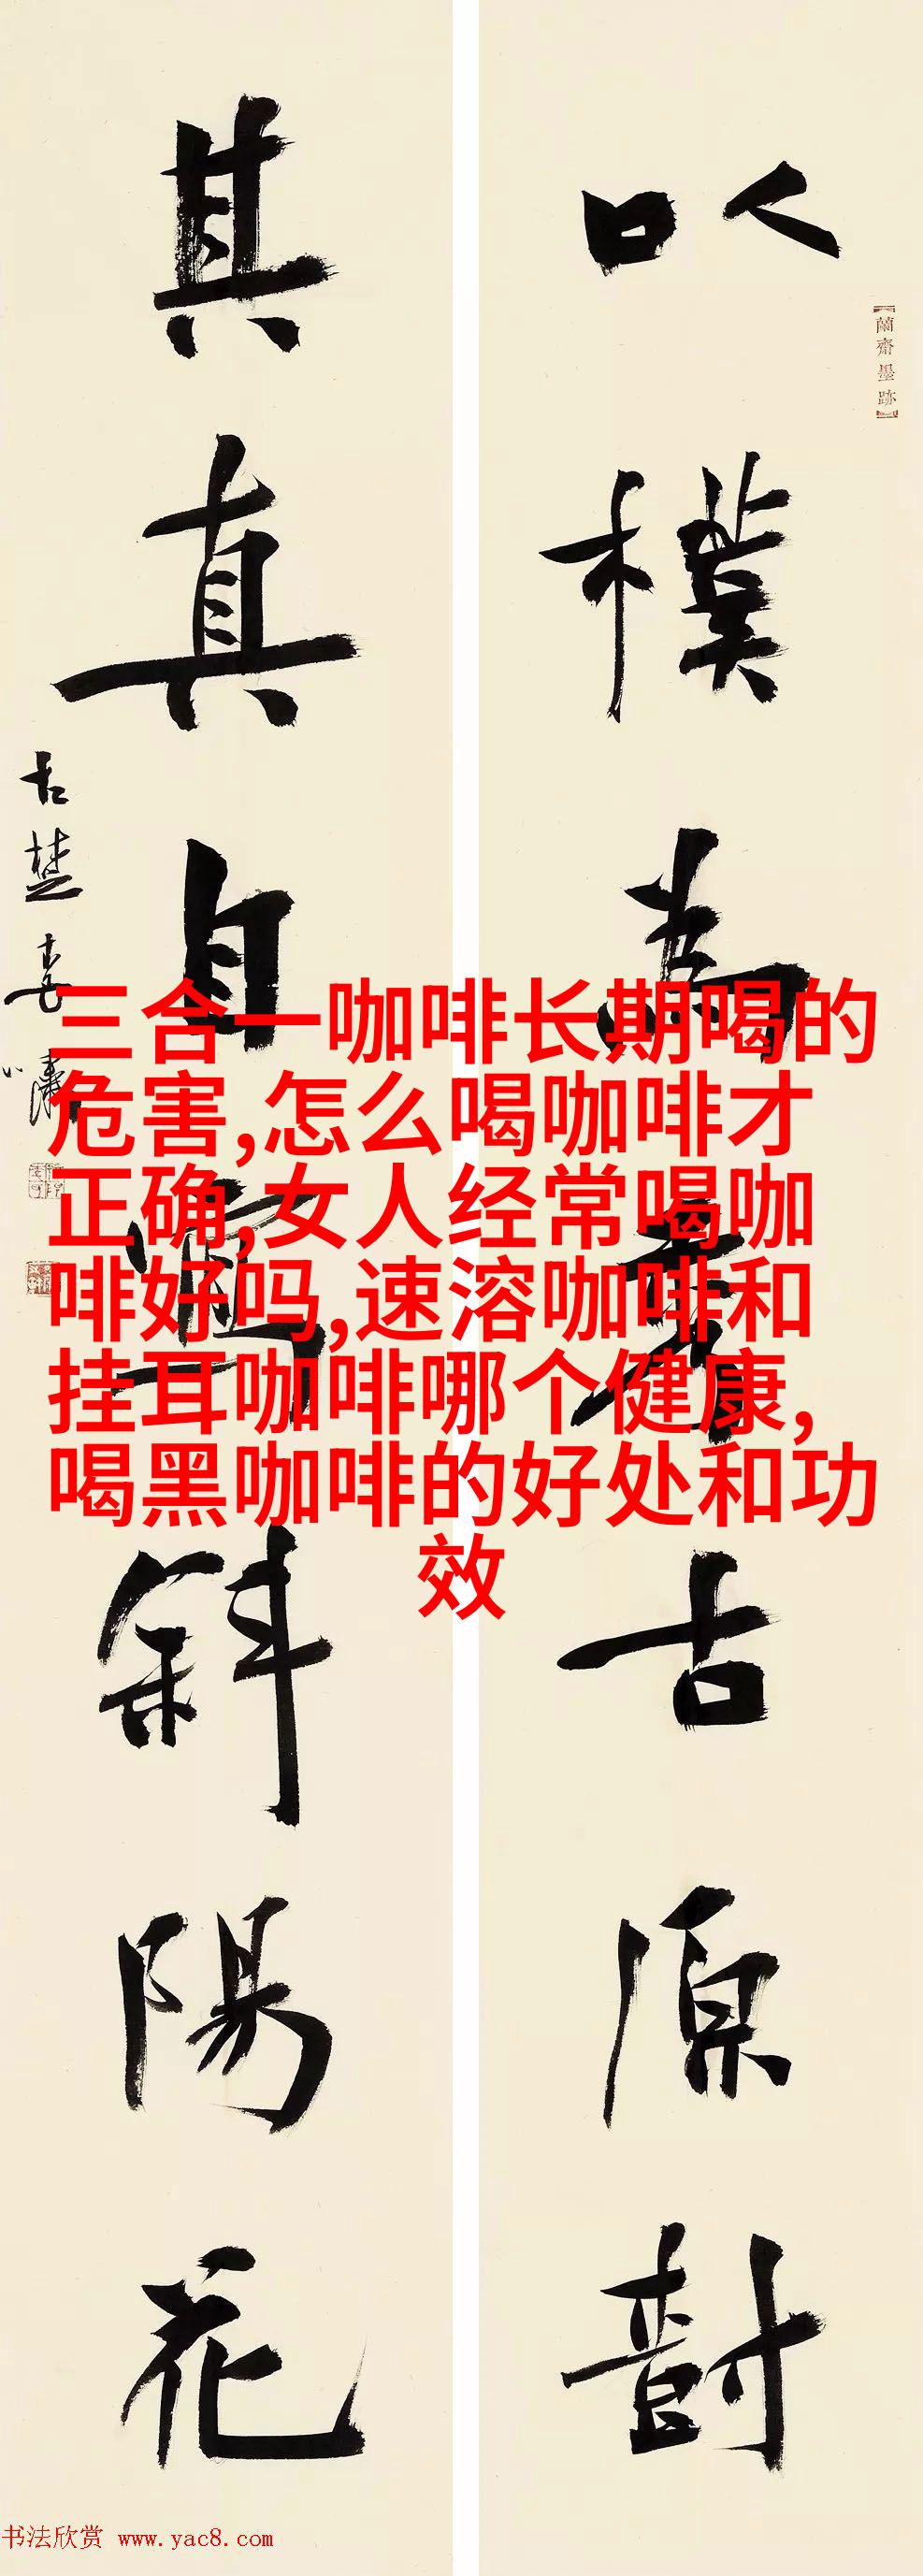 【蘭齋墨跡】
以樸為秀古原尌
其真自寫斜陽花
古楚
三合一咖啡长期喝的
危害,怎么喝咖啡才
正确,女人经常喝咖
啡好吗,速溶咖啡和
挂耳咖啡哪个健康,
喝黑咖啡的好处和功
效
书法欣赏 www.yac8.com